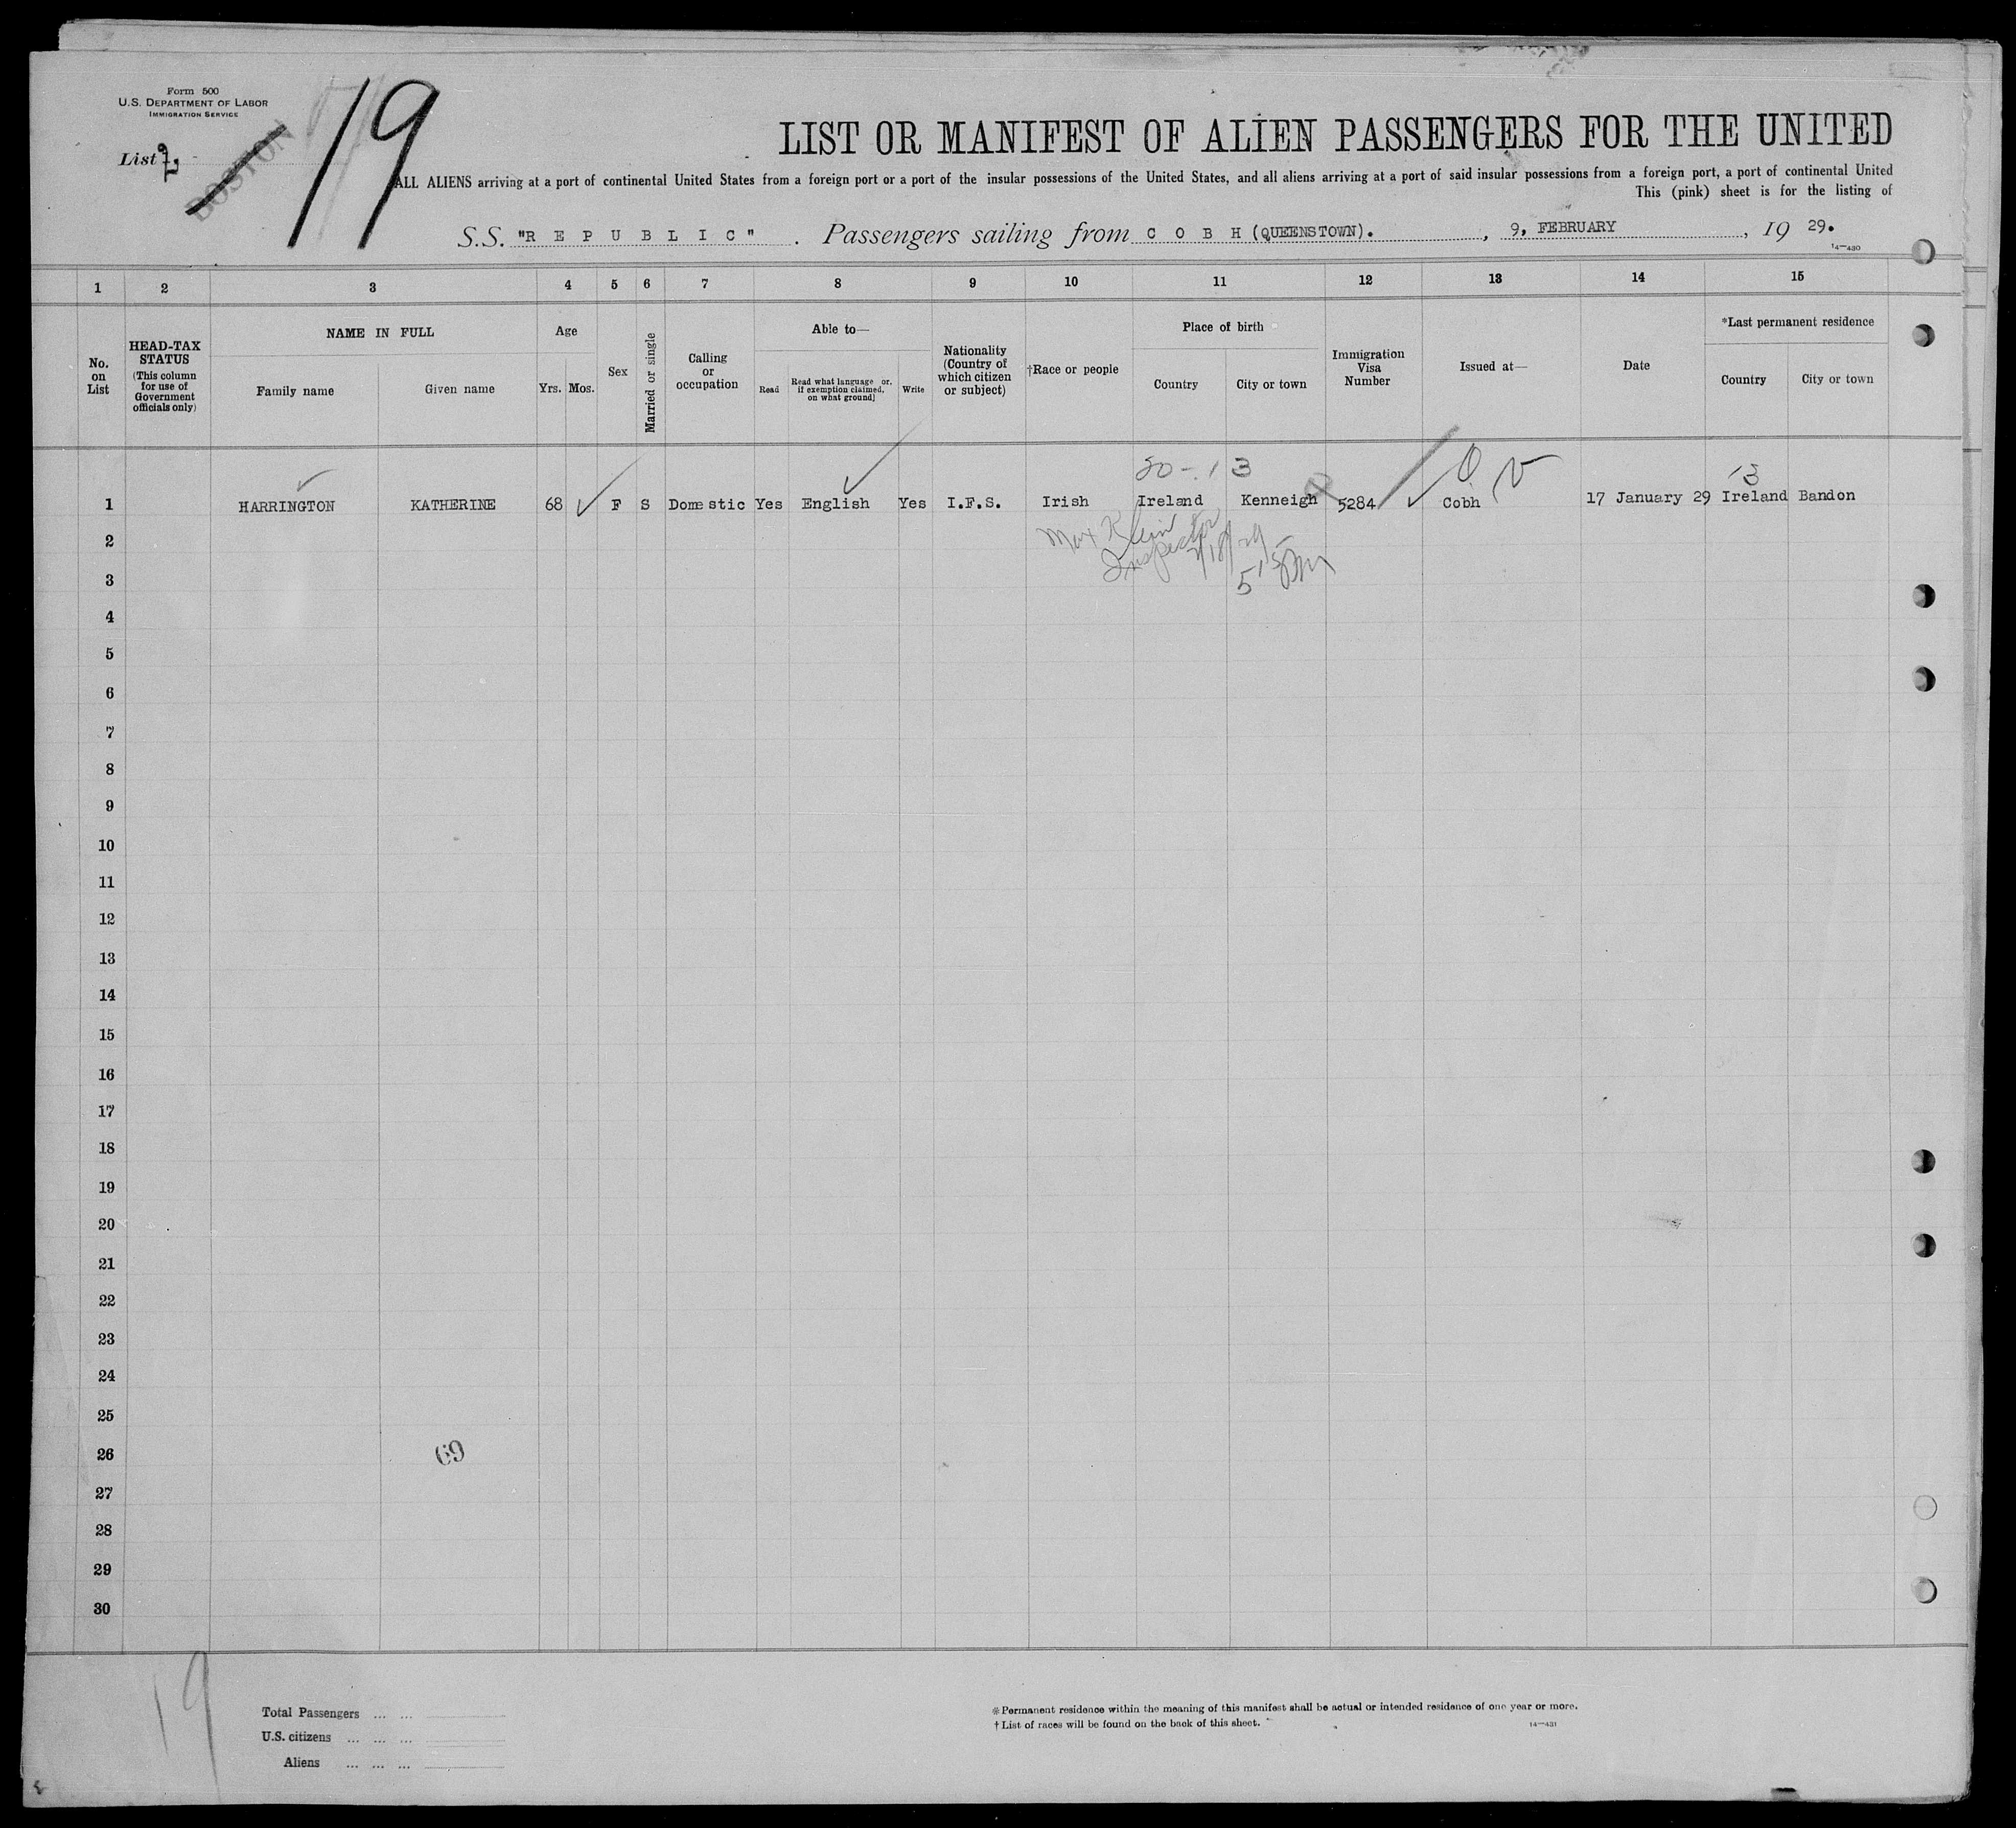 Form 500
U.S. DEPARTMENT OF LABOR
IMMIGRATION SERVICE
List 2
BOSTON
19
LIST OR MANIFEST OF ALIEN PASSENGERS FOR THE UNITED
ALL ALIENS arriving at a port of continental United States from a foreign port or a port of the insular possessions of the United States, and all aliens arriving at a port of said insular possessions from a foreign port, a port of continental United
This (pink) sheet is for the listing of
S.S. "REPUBLIC". Passengers sailing from COBH (QUEENSTOWN)., 9, FEBRUARY, 19 29.
14—430
1 2 3 4 5 6 7 8 9 10 11 12 13 14 15
No. on List
HEAD-TAX STATUS
(This column for use of Government officials only)
NAME IN FULL
Family name Given name
Age
Yrs. Mos.
Sex
Married or single
Calling or occupation
Able to—
Read
Read what language or, if exemption claimed, on what ground]
Write
Nationality (Country of which citizen or subject)
†Race or people
Place of birth
Country City or town
Immigration Visa Number
Issued at—
Date
*Last permanent residence
Country City or town
20-13
13
1 HARRINGTON KATHERINE 68 F S Domestic Yes English Yes I.F.S. Irish Ireland Kenneigh 5284 Cobh 17 January 29 Ireland Bandon
Max Klein
Inspector
2/18/29
5 15 PM
2
3
4
5
6
7
8
9
10
11
12
13
14
15
16
17
18
19
20
21
22
23
24
25
26
69
27
28
29
30
19
Total Passengers ... ...
U.S. citizens ... ... ...
Aliens ... ... ...
*Permanent residence within the meaning of this manifest shall be actual or intended residence of one year or more.
†List of races will be found on the back of this sheet.
14—431